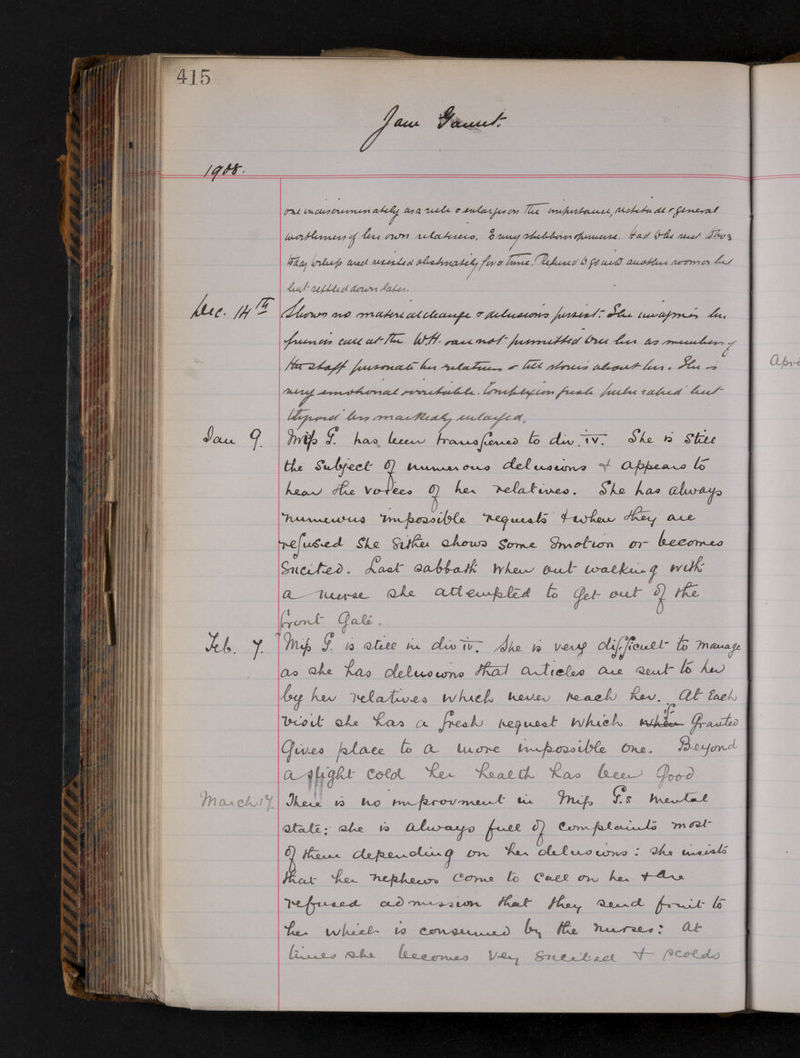 415
1908.
one indiscriminately as a rule & enlarges on the importance, rectitude & general
worthiness of her own relatives,
resisted obstinately for a time. Refused to go into another room or bed
but settled down later.
Dec. 14th Shows no material change & delusions persist. She imagines her
friends call at the W.H. & are not permitted to see her or members of
the staff personate her relatives & tell stories about her. She is
very emotional & irritable. Complexion fresh but
Thyroid less markedly enlarged.
Jan 9. Miss G. has been transferred to div. IV. She is still
the subject of numerous delusions & appears to
hear the voices of her relatives. She has always
numerous impossible requests & when they are
refused she either shows some emotion or becomes
excited. Last sabbath when out walking with
a nurse she attempted to get out of the
front gate.
Feb. 7. Miss G. is still in div IV. She is very difficult to manage
as she has delusions that articles are sent to her
by her relatives which never reach her. At each
visit she has a fresh request which when if granted
gives place to a more impossible one. Beyond
a slight cold her health has been good
March 17. There is no improvment in Miss G.s mental
state: she is always full of complaints most
of them depending on her delusions: she insists
that her nephews come to call on her & are
refused admission that they send fruit to
her which is consumed by the nurses: at
times she becomes very excited & scolds